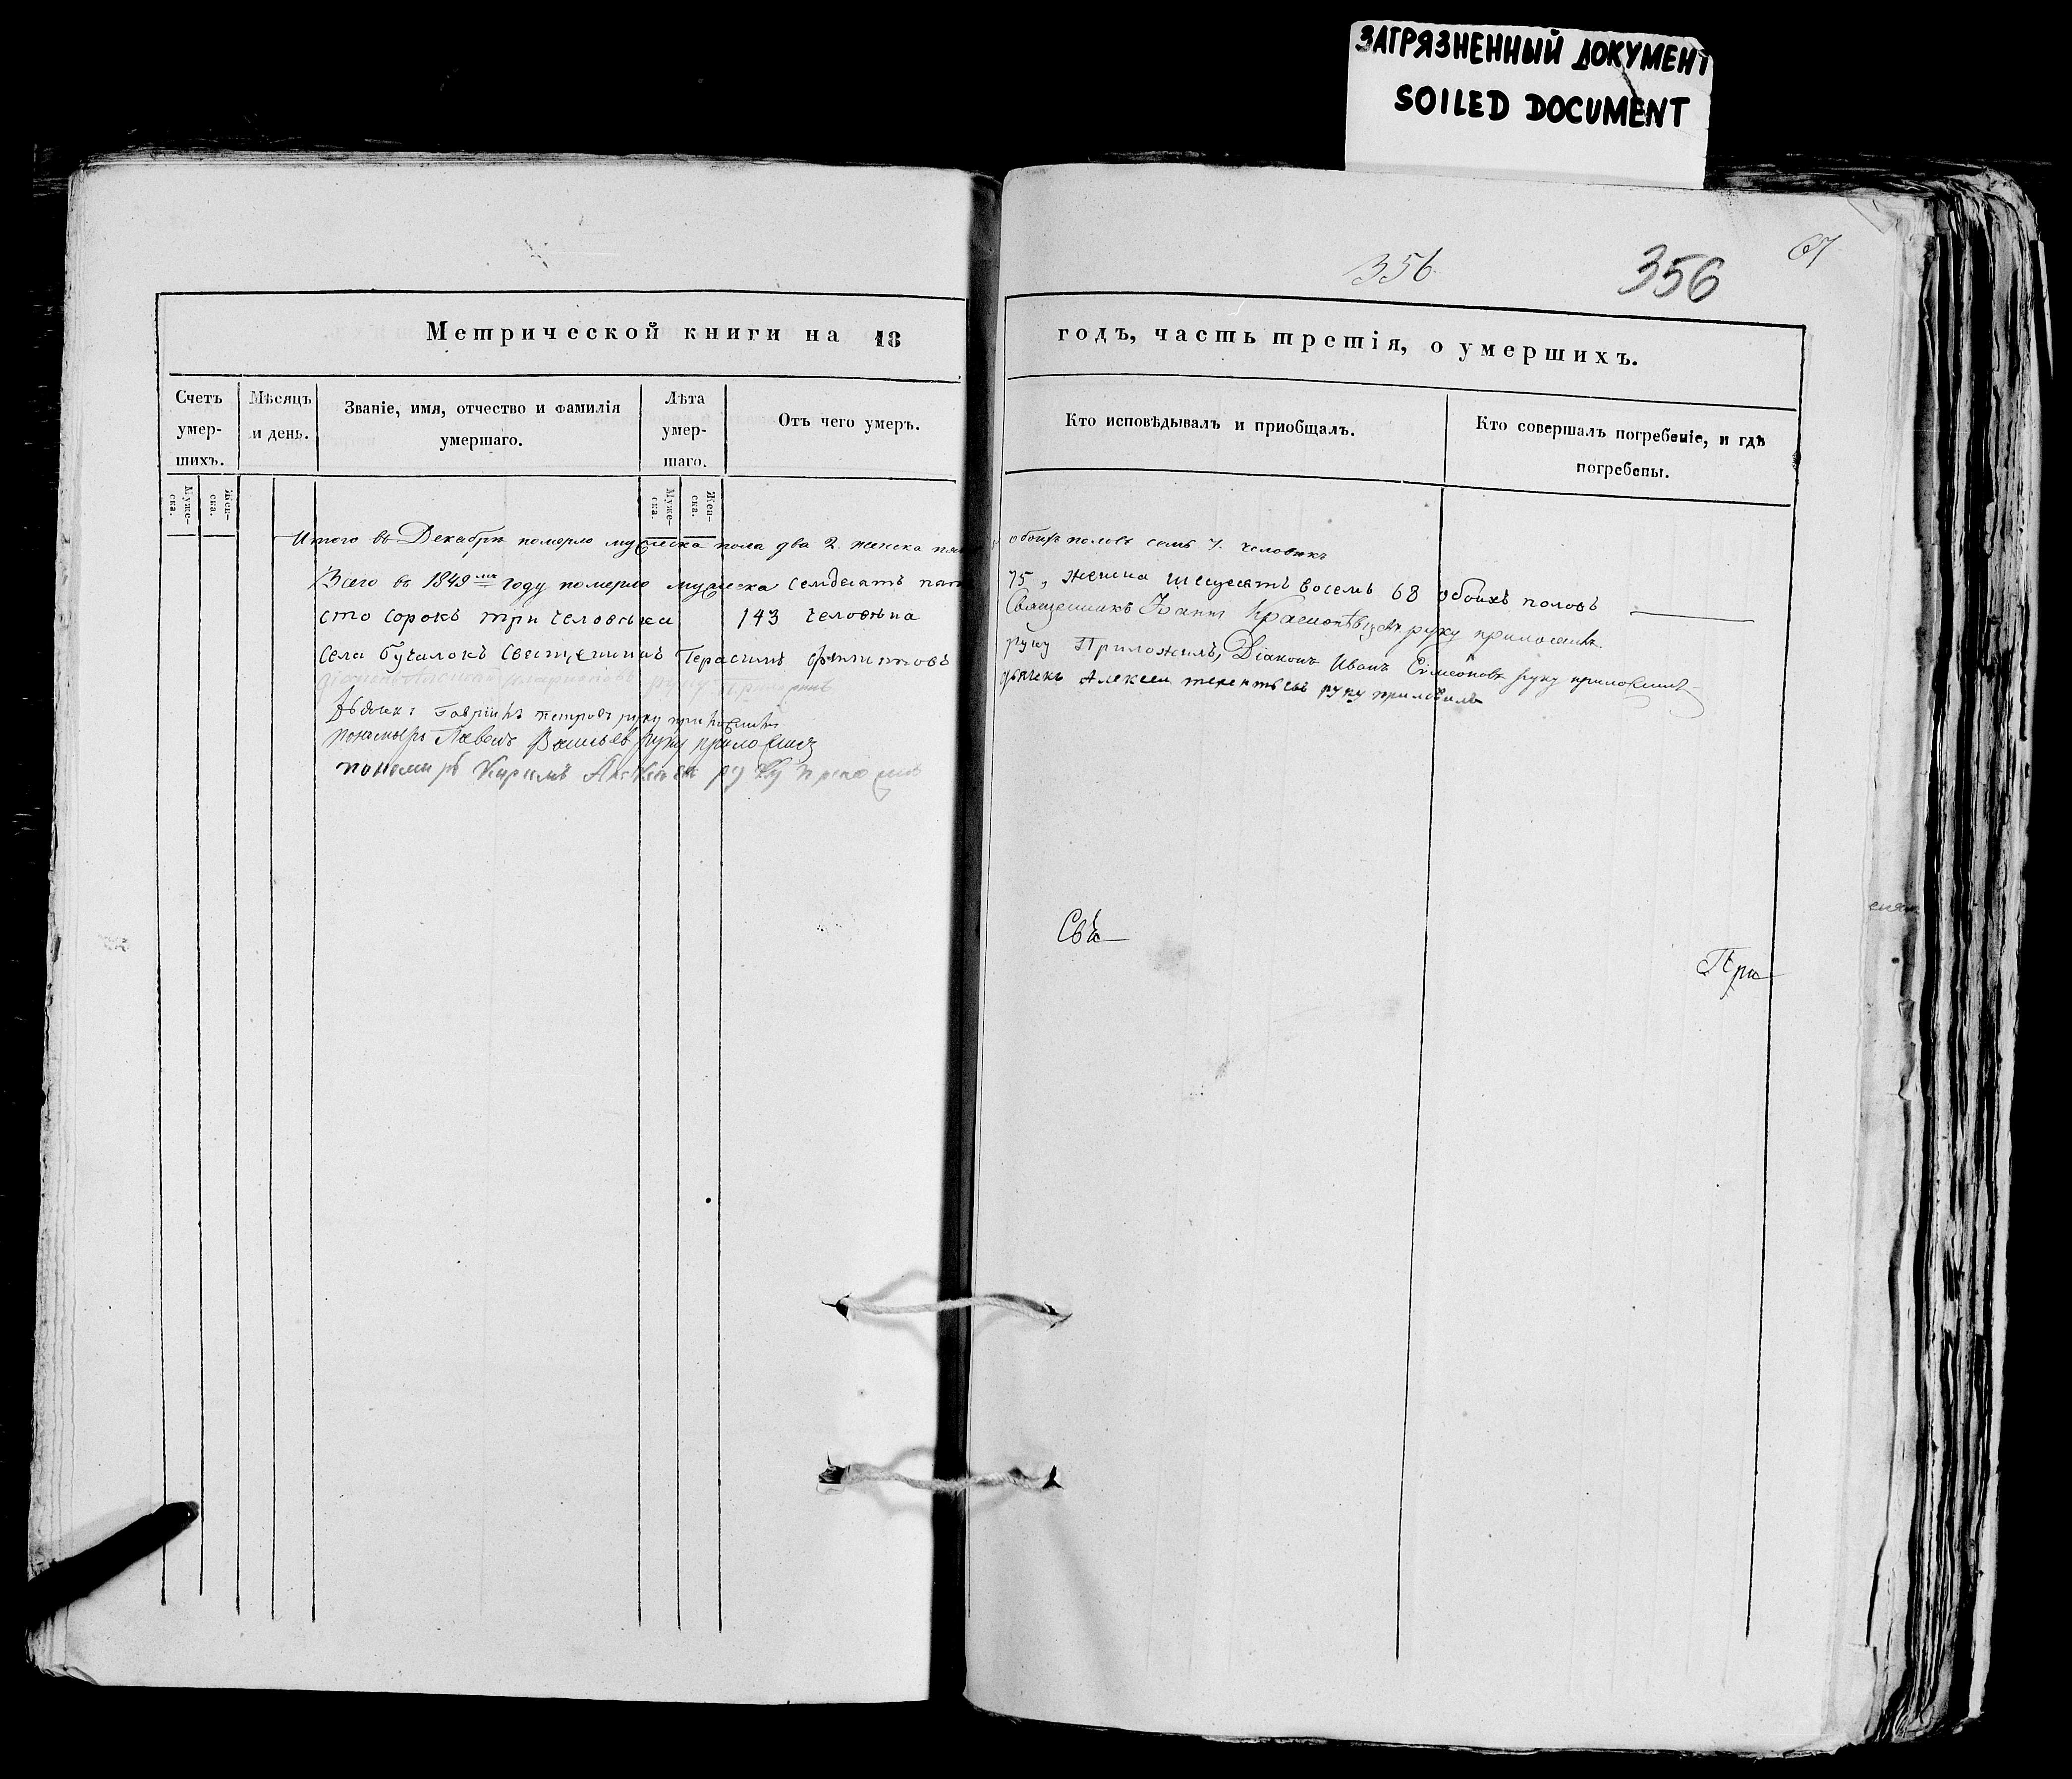 ЗАГРЯЗНЕННЫЙ ДОКУМЕНТ
SOILED DOCUMENT
356
356
67
Метрической книги на 18
годъ, часть третія, о умершихъ.
Счетъ умер-шихъ.
Мѣсяцъ и день.
Званіе, имя, отчество и фамилія умершаго.
Лѣта умер-шаго.
Отъ чего умеръ.
Кто исповѣдывалъ и приобщалъ.
Кто совершалъ погребеніе, и гдѣ погребены.
Муже-ска.
Жен-ска.
Муже-ска.
Жен-ска.
Итого въ Декабрѣ померло мужеска пола два 2. женска
обоихъ половъ семь 7. человѣкъ
Всего въ 1849мъ году померло мужеска семдесятъ пять
75, женска шесдесятъ восемь 68 обоихъ половъ
сто сорокъ три человѣка 143 человѣка
Священникъ Іоаннъ руку приложилъ
Села Бучалокъ Священникъ Герасимъ Филипповъ
руку Приложилъ, Діаконъ Иванъ Симеоновъ руку приложилъ
руку
дьячекъ Алексей терентьевъ руку приложилъ
дьячекъ Гавріилъ Петровъ руку приложилъ
пономарь Павелъ Васильевъ руку приложилъ
пономарь руку приложилъ
Свѣ
При